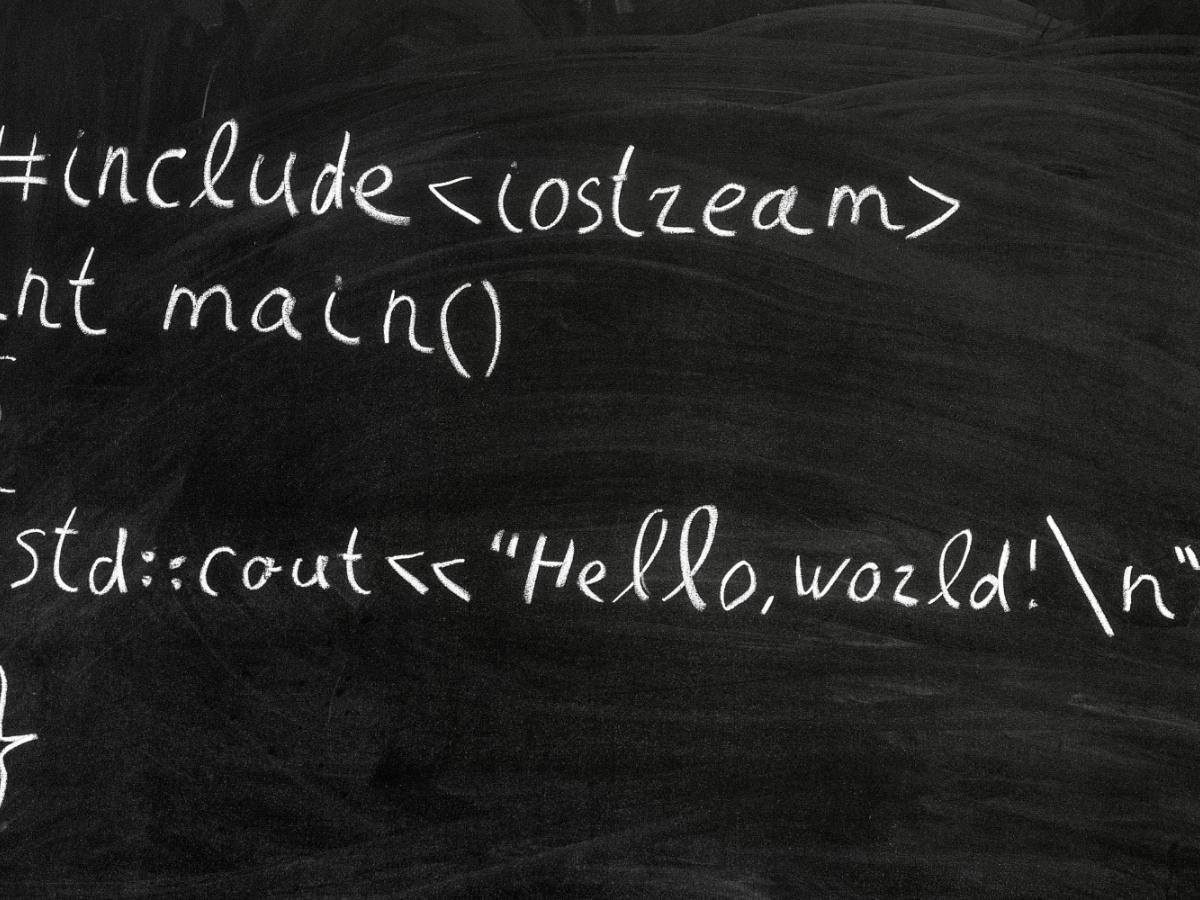 #include<iostream>
int main()
{
std::cout<<"Hello,world!\n"
}